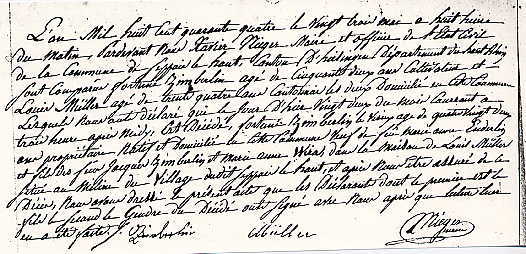 L'an Mil huit Cent quarante quatre le Vingt trois mai a huit heures
du Matin, Pardevant Nous Xavier Rieger Maire et officier de l'Etat Civil
de la Commune de Seppois le haut, Canton D'hirsingen Département du haut Rhin
Sont Comparus fortuné Zimberlin agé de Cinquante deux ans Cultivateur et
Louis Müller agé de trente quatre ans les deux Domicilié en Cette Commune
Lesquels Nous ont déclaré que le Jour d'hier Vingt deux du mois Courrant a
trois heure après Midy, Est Décédé, fortuné Zimberlin le Vieux agé de quatre Vingt deux
ans propriétaire Natif et Domicilié en Cette Commune Veuf de feu Marie anne
et fils des feu Jacques Zimberlin et Marie anne dans la Maison de Louis Müller
Située au Milieu du Village dudit Seppois le haut, et après Nous être assuré de le
Décès, Nous avons dressé le présent acte que les Déclarants dont le premier est le
fils le second le Gendre du Décédé ont signé avec Nous après que lecture leur
en a été faite. Zimberlin Müller Rieger
maire